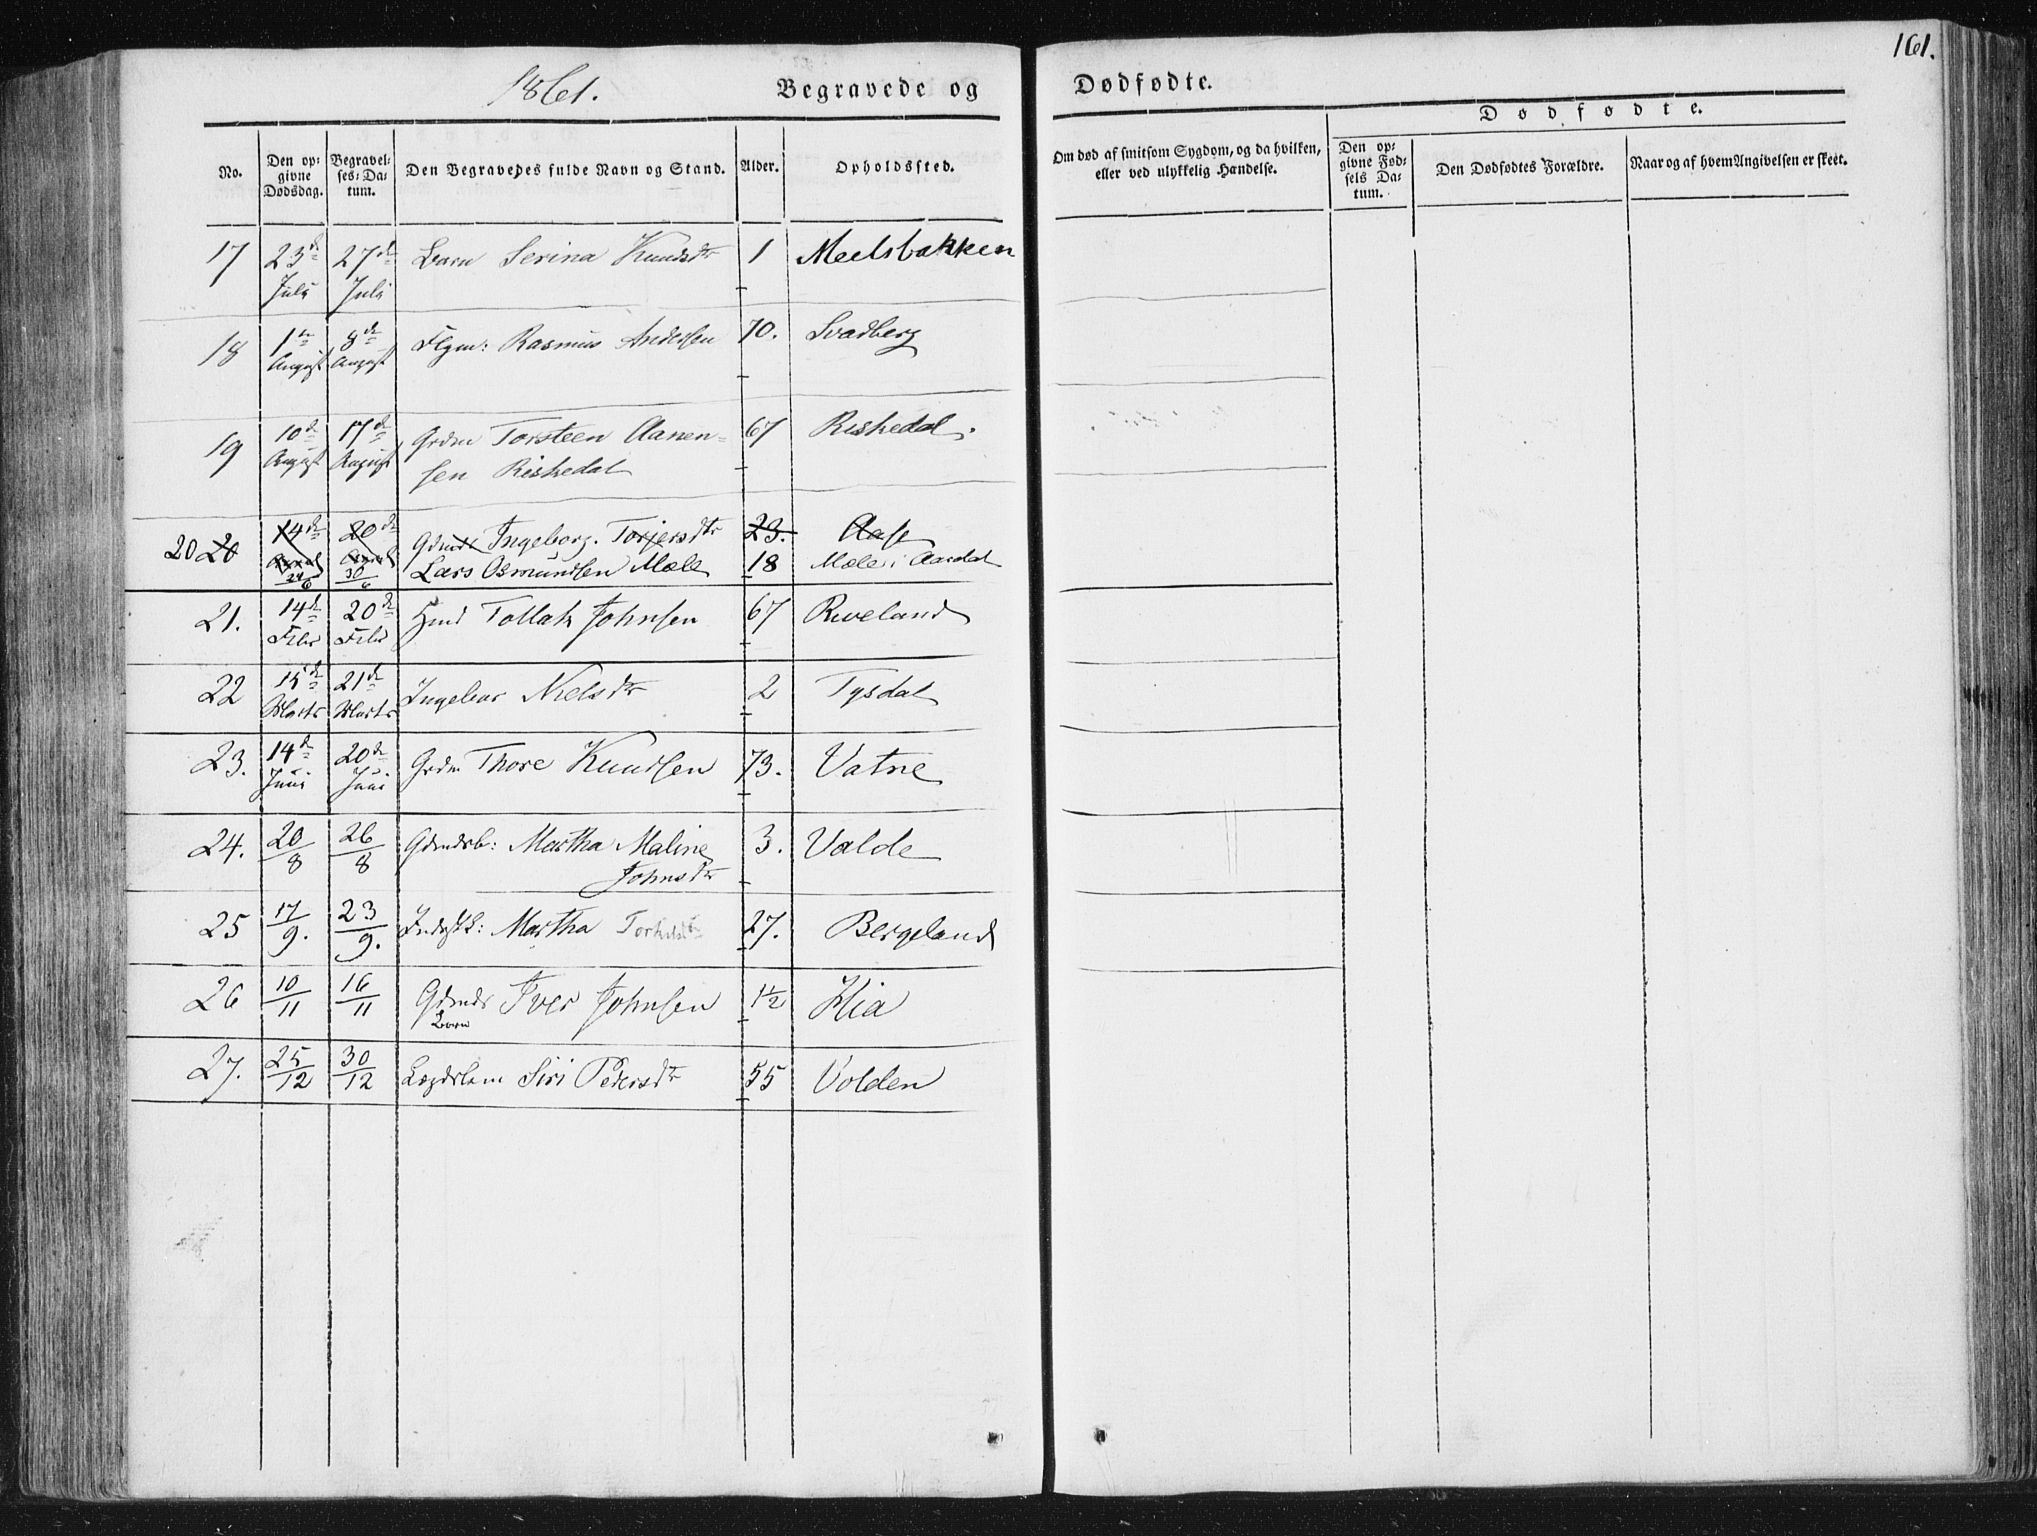 161.
1861.
Begravede og Dødfødte.
Dødfødte.
No.
Den op-
givne
Dødsdag.
Begravel-
ses-Da-
tum.
Den Begravedes fulde Navn og Stand.
Alder.
Opholdssted.
Om død af smitsom Sygdom, og da hvilken,
eller ved ulykkelig Hændelse.
Den op-
givne Fød-
sels Da-
tum.
Den Dødfødtes Forældre.
Naar og af hvem Angivelsen er skeet.
17 23de July 27de July Barn Serina Knudsdtr 1 Meelsbakken
18 1te August 8de August Rasmus Andersen 70. Svadberg
19 10de August 17de August Grdm Torsteen Aanen-
sen Riskedal 67 Riskedal.
20 14de 20de Ingeborg Torjersdtr 23. Aase
20 24/6 30/6 Lars Osmundsen Mæle 18 Mæle i Aardal
21. 14de Febr 20de Febr Tollak Johnsen 67 Riveland
22 15de Marts 21de Marts Ingebor Nielsdtr 2 Tysdal
23. 14de Juni 20de Juni Grdm Thore Knudsen 73. Vatne
24. 20/8 26/8 Gdmdsb: Martha Maline
Johnsdtr 3. Valde
25 17/9. 23/9. Martha 27. Bergeland
26 10/11 16/11 Gdmds
Barn Iver Johnsen 1½ Hia
27. 25/12 30/12 Lægdslem Siri Pedersdtr 55 Volden